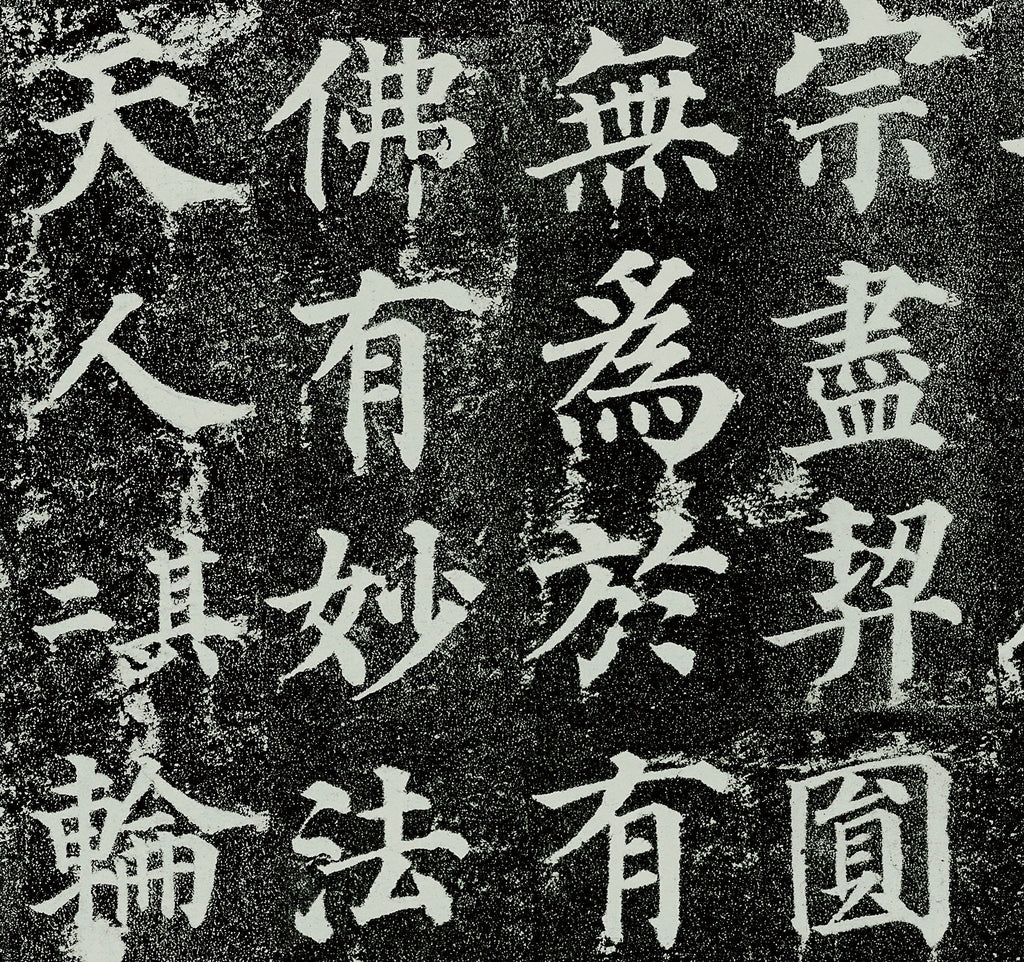 宗盡契圓
無爲於有
佛有妙法
天人其二輪